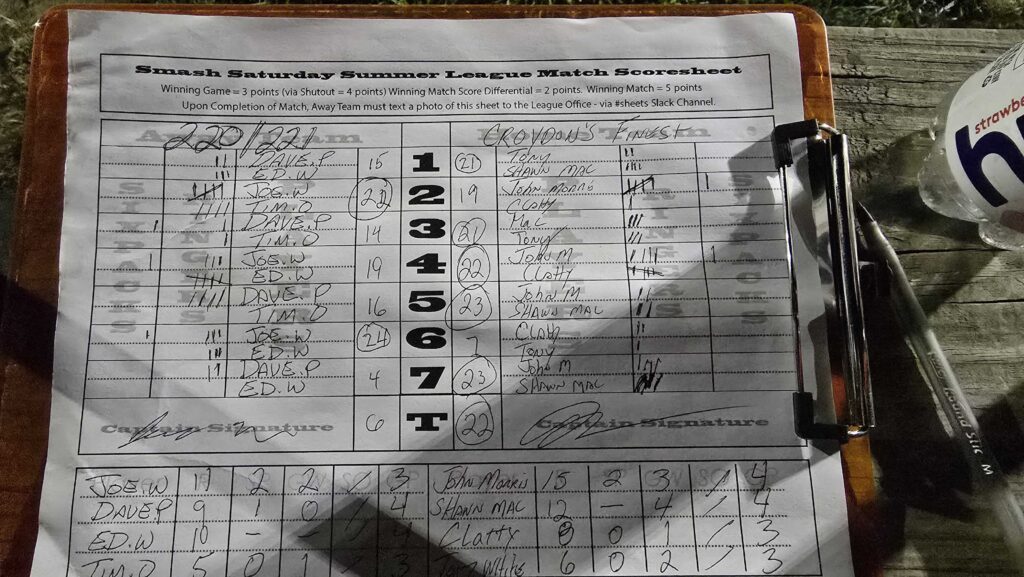 Smash Saturday Summer League Match Scoresheet
Winning Game = 3 points (via Shutout = 4 points) Winning Match Score Differential = 2 points. Winning Match = 5 points
Upon Completion of Match, Away Team must text a photo of this sheet to the League Office - via #sheets Slack Channel.
220/221 CROYDON'S FINEST
DAVE.P 15 1 21 TONY
ED.W SHANN MAC
JOE.W 23 2 19 JOHN MORRIS
TIM.O CLATTY
DAVE.P 14 3 21 MAC
TIM.O TONY
JOE.W 19 4 22 JOHN M
ED.W CLATTY
DAVE.P 16 5 23 JOHN M
TIM.O SHANN MAC
JOE.W 24 6 7 CLATTY
ED.W TONY
DAVE.P 4 7 23 JOHN M
ED.W SHANN MAC
Captain Signature 6 T 22 Captain Signature
JOE.W 2 2 / 3 JOHN MORRIS 15 2 3 / 4
DAVE P 9 1 0 / 4 SHANN MAC 12 - 4 / 4
ED.W 10 - - / 4 CLATTY 8 0 1 / 3
TIM.O 5 0 1 / 3 White 6 0 2 / 3
strawbe
h
Stic M